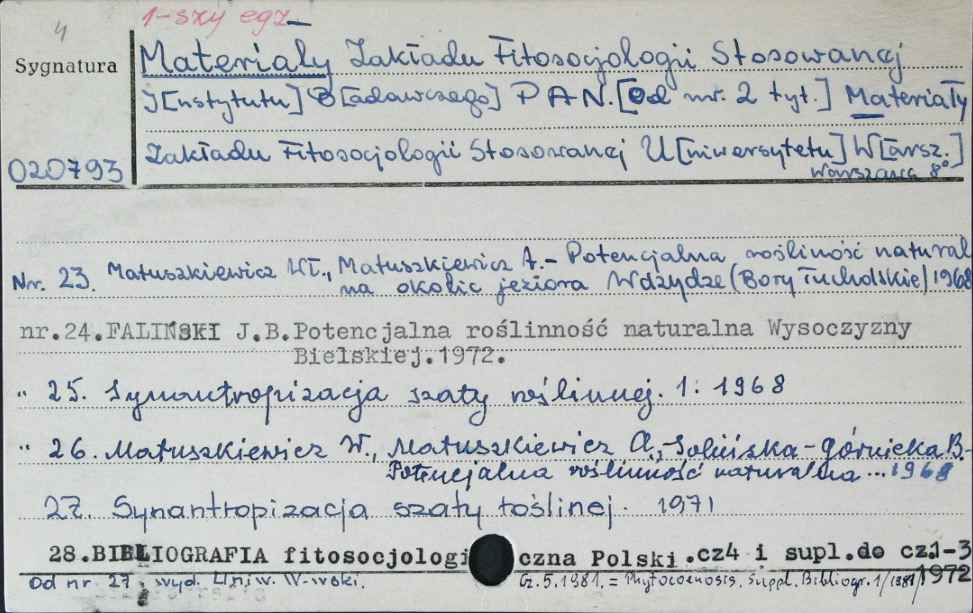 4 1-szy egz.
Sygnatura Materiały Zakładu Fitosocjologii Stosowanej
I[nstytutu] B[adawczego] PAN. [Od nr. 2 tyt.] Materiały
020793 Zakładu Fitosocjologii Stosowanej U[niwersytetu] W[arsz.]
Warszawa 8°
Nr. 23. Matuszkiewicz Wł., Matuszkiewicz A. - Potencjalna rośliność natural
na okolic jeziora Wdzydze (Bory Tucholskie) 1968
nr.24.FALIŃSKI J.B.Potencjalna roślinność naturalna Wysoczyzny
Bielskiej.1972.
" 25. Synantropizacja szaty roślinnej. 1: 1968
" 26. Matuszkiewicz W., Matuszkiewicz A., Solińska-Górnicka B.-
Potencjalna roślinność naturalna ... 1968
27. Synantropizacja szaty roślinej. 1971
28.BIBLIOGRAFIA fitosocjologiczna Polski.cz4 i supl.do cz.1-3
Od nr. 27 wyd. Uniw. W-wski. Cz. 5.1981. = Phytocoenosis. Suppl. Bibliogr. 1/1981/ 1972